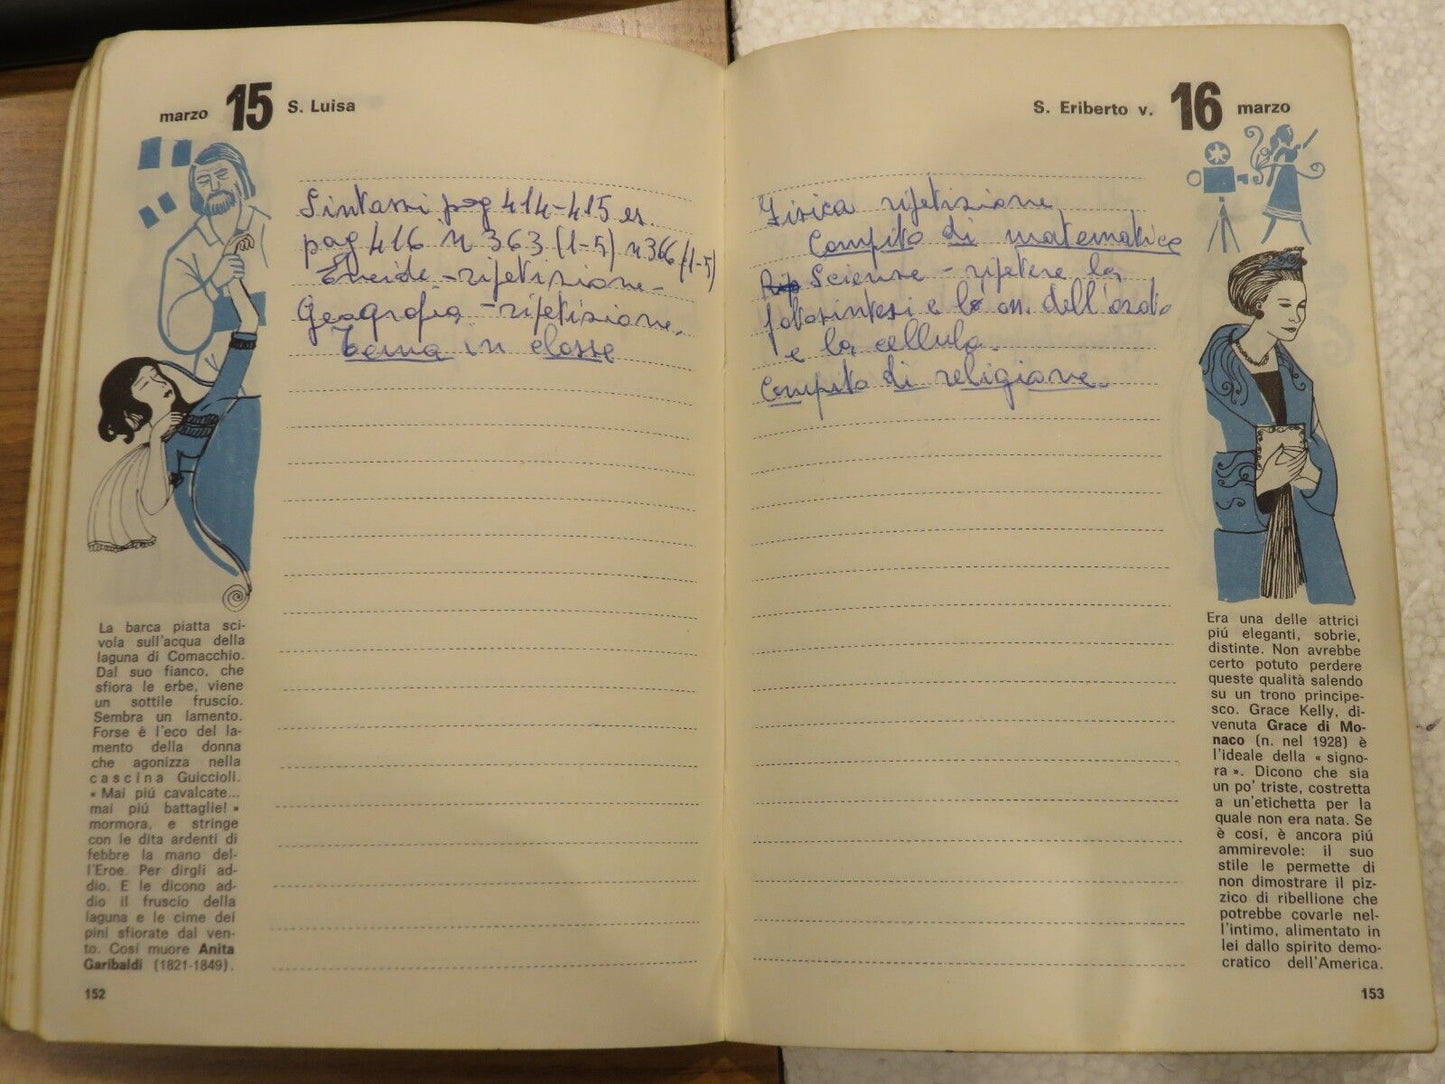 marzo 15 S. Luisa
Sintassi pag 414-415 es.
pag 416 n 363 (1-5) n 366 (1-5)
Eneide - ripetizione -
Geografia - ripetizione.
Tema in classe
La barca piatta sci-
vola sull'acqua della
laguna di Comacchio.
Dal suo fianco, che
sfiora le erbe, viene
un sottile fruscio.
Sembra un lamento.
Forse è l'eco del la-
mento della donna
che agonizza nella
cascina Guiccioli.
« Mai piú cavalcate...
mai piú battaglie! »
mormora, e stringe
con le dita ardenti di
febbre la mano del-
l'Eroe. Per dirgli ad-
dio. E le dicono ad-
dio il fruscio della
laguna e le cime dei
pini sfiorate dal ven-
to. Cosí muore Anita
Garibaldi (1821-1849).
152
S. Eriberto v. 16 marzo
Fisica ripetizione
Compito di matematica
Rip Scienze - ripetere la
fotosintesi e le on. dell'
e la cellula.
Compito di religione.
Era una delle attrici
piú eleganti, sobrie,
distinte. Non avrebbe
certo potuto perdere
queste qualità salendo
su un trono principe-
sco. Grace Kelly, di-
venuta Grace di Mo-
naco (n. nel 1928) è
l'ideale della « signo-
ra ». Dicono che sia
un po' triste, costretta
a un'etichetta per la
quale non era nata. Se
è cosí, è ancora piú
ammirevole: il suo
stile le permette di
non dimostrare il piz-
zico di ribellione che
potrebbe covarle nel-
l'intimo, alimentato in
lei dallo spirito demo-
cratico dell'America.
153